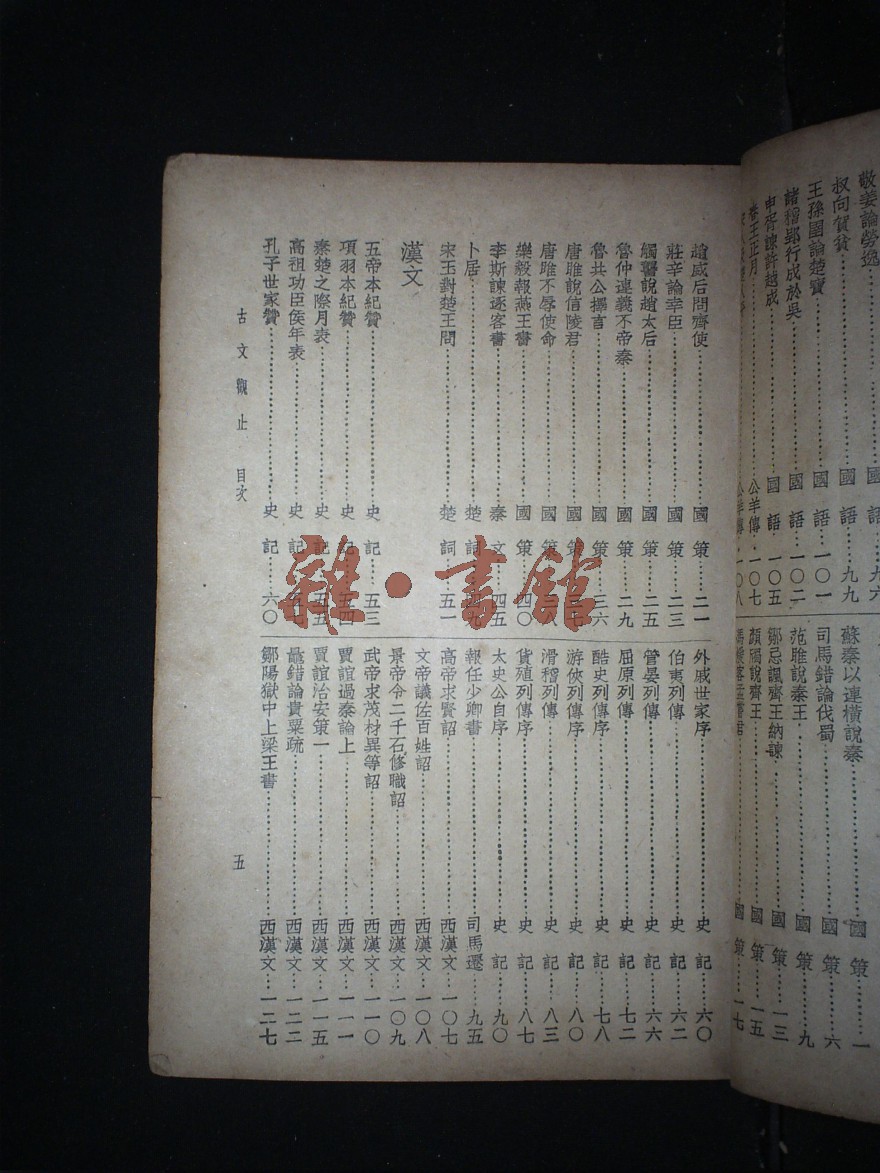 敬姜論勞逸
叔向賀貧 國語 九九
王孫圉論楚寶 國語 一〇一
諸稽郢行成於吳 國語 一〇二
申胥諫許越成 國語 一〇五
春王正月 公羊傳 一〇七
蘇秦以連橫說秦 國策 一
司馬錯論伐蜀 國策 六
范雎說秦王 國策 九
鄒忌諷齊王納諫 國策 一三
顏斶說齊王 國策 一五
馮煖客孟嘗君 國策 一七
趙威后問齊使 國策 二一
莊辛論幸臣 國策 二三
觸讋說趙太后 國策 二五
魯仲連義不帝秦 國策 二九
魯共公擇言 國策 三六
唐雎說信陵君 國策
唐雎不辱使命 國策
樂毅報燕王書 國策 四〇
李斯諫逐客書 秦文 四五
卜居 楚詞 四九
宋玉對楚王問 楚詞 五一
漢文
五帝本紀贊 史記 五三
項羽本紀贊 史記 五四
秦楚之際月表 史記 五五
高祖功臣侯年表 史記
孔子世家贊 史記 六〇
外戚世家序 史記 六〇
伯夷列傳 史記 六二
管晏列傳 史記 六六
屈原列傳 史記 七二
酷吏列傳序 史記 七八
游俠列傳序 史記 八〇
滑稽列傳 史記 八三
貨殖列傳序 史記 八七
太史公自序 史記 九〇
報任少卿書 司馬遷 九五
高帝求賢詔 西漢文 一〇七
文帝議佐百姓詔 西漢文 一〇八
景帝令二千石修職詔 西漢文 一〇九
武帝求茂材異等詔 西漢文 一一〇
賈誼過秦論上 西漢文 一一一
賈誼治安策一 西漢文 一一五
鼂錯論貴粟疏 西漢文 一二二
鄒陽獄中上梁王書 西漢文 一二七
古文觀止 目次 五
雜·書館